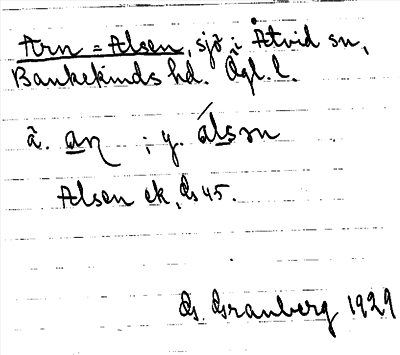 Arn = Alsen, sjö i Åtvid sn,
Bankekinds hd. Ögl. l.
ä. an ; y. álsm
Alsen ek, Gs 45.
G. Granberg 1929